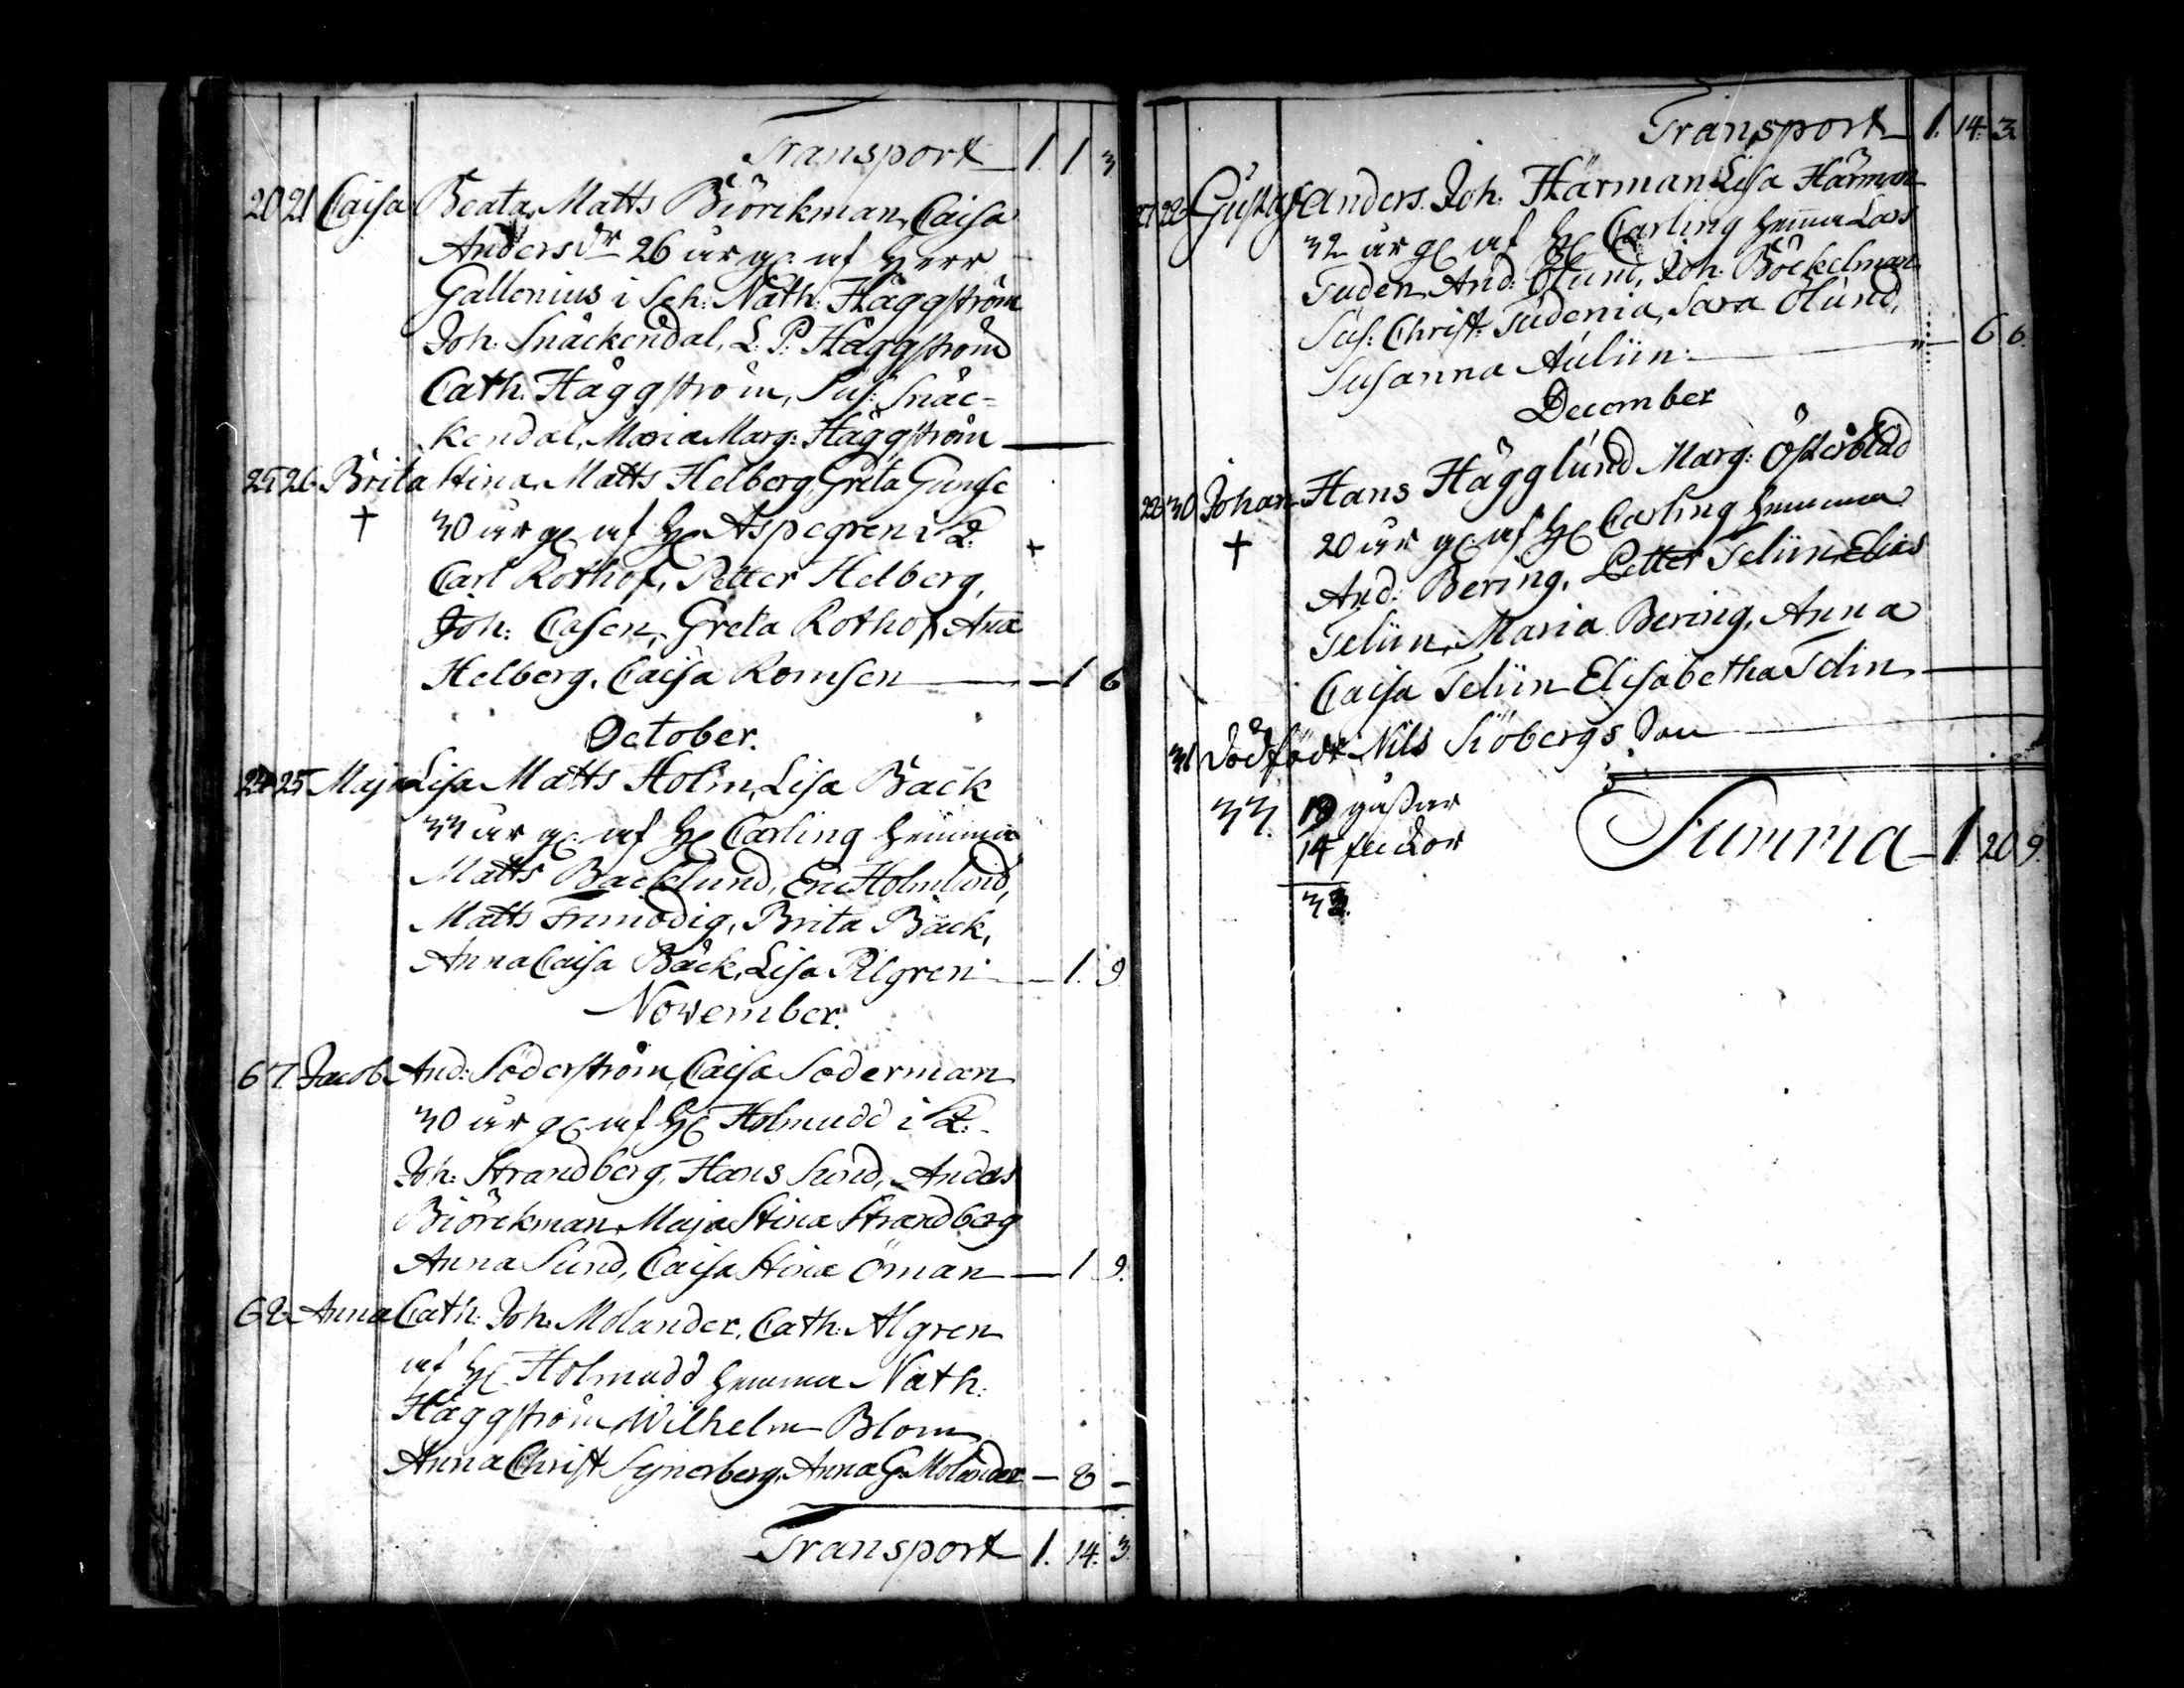 Transport 1. 1 3
20 21 Caisa Beata, Matts Biörckman, Caisa
Andersdr 26 år gl. af Herr
Gallenius i Sch: Nath: Häggström
Joh: Snäckendal, L: P: Häggström
Cath: Häggström, Sus: Snäc-
kendal, Maria Marg: Häggström
25 26 Brita Stina, Matts Helberg, Greta Gunse
† 30 år gl af Hl Aspegren i K:
Carl Rothof, Petter Helberg,
Joh: Casen, Greta Rothof, Ana
Helberg, Caisa Romsen — 1 6
October.
24 25 Maja Lisa Matts Holm, Lisa Back
33 år gl. af Hl Carling hemma
Matts Backlund, Eric Holmlund,
Matts Frimodig, Brita Bäck,
Anna Caisa Bäck, Lisa Pilgren — 1. 9
November.
6 7. Jacob And: Söderström, Caisa Söderman
30 år gl af Hl Holmudd i K:
Joh: Strandberg, Hans Sund, Anders
Biörckman, Maja Stina Strandberg
Anna Sund, Caisa Stina Öman — 1 9.
6 8. Anna Cath: Joh: Molander, Cath: Algren
af Hl Holmudd hemma Nath:
Häggström Wilhelm Blom
Anna Christ Synerberg, Anna G: Molander — 8 —
Transport 1. 14. 3.
Transport 1. 14. 3
27 28 Gustaf Anders. Joh: Härman Lisa Härman
32 år gl af Hl Carling hemma Lars
Tuden, And: Ölund, Joh: Böckelman
Sus: Christ: Tudenia, Sara Ölund,
Susanna Auliin — 6 6.
December
29 30 Johan Hans Hägglund Marg: Österblad
† 20 år gl. af Hl Carling hemma
And: Bering, Petter Teliin, Elias
Teliin, Maria Bering, Anna
Caisa Teliin Elisabetha Telin
31 Dödfödt Nils Siöbergs Son
33. 19 gossar
14 flickor
33.
Summa 1. 20 9.